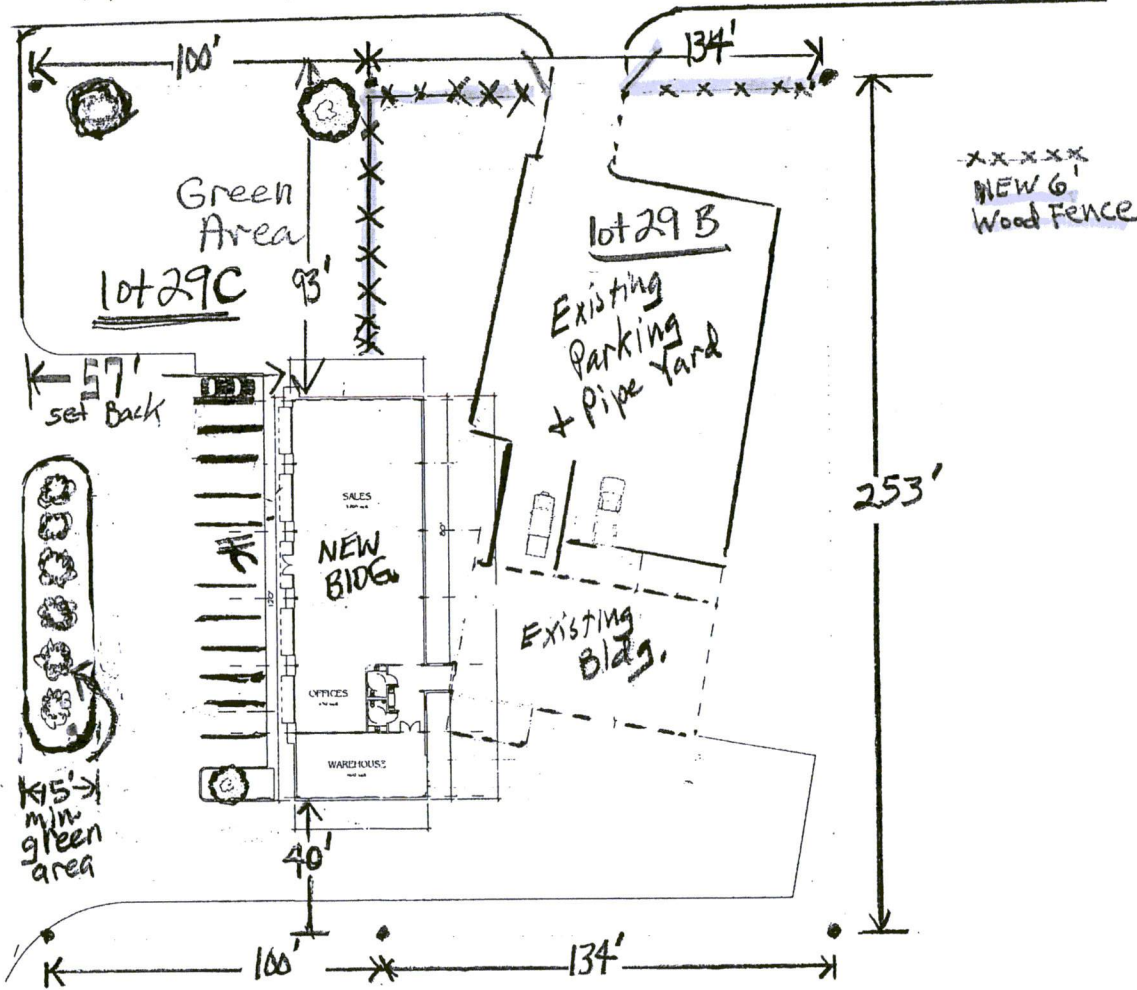 100'
134'
x x x x x
NEW 6'
Wood Fence
Green
Area
lot 29C
93'
lot 29 B
Existing
Parking
+ Pipe Yard
57'
set Back
253'
SALES
NEW
BLDG.
120'
80'
Existing
Bldg.
OFFICES
WAREHOUSE
15'
min.
green
area
40'
100'
134'